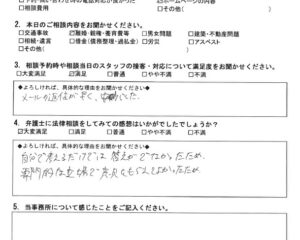 □相談費用 □その他( )
2. 本日のご相談内容をお聞かせください。
□交通事故 ☑離婚・親権・養育費等 □男女問題 □建築・不動産問題
□相続・遺言 □借金(債務整理・過払金) □労災 □アスベスト
□その他( )
3. 相談予約時や相談当日のスタッフの接客・対応について満足度をお聞かせください。
□大変満足 ☑満足 □普通 □やや不満 □不満
◆よろしければ、具体的な理由をお聞かせください◆
メールの返信が早く、
4. 弁護士に法律相談をしてみての感想はいかがでしたでしょうか?
□大変満足 ☑満足 □普通 □やや不満 □不満
◆よろしければ、具体的な理由をお聞かせください◆
自分で考えるだけでは答えがでなかったため、
専門的な立場で
5. 当事務所について感じたことをご記入ください。